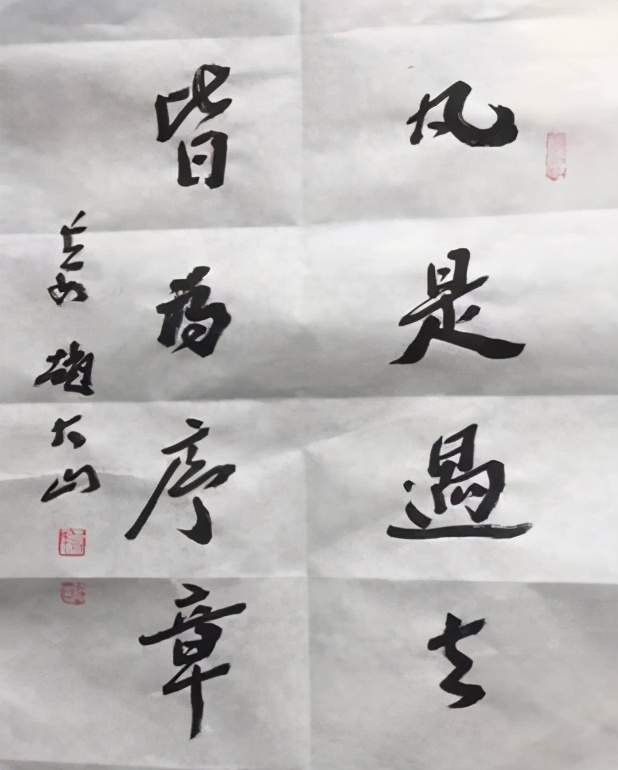 凡是過去
皆為序章
大山